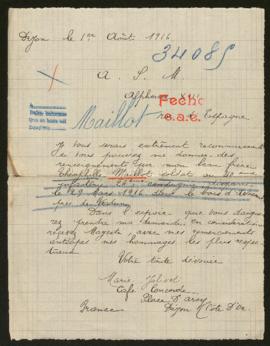 Dijon le 1er Août 1916.
34085
A. S. M.
Alphonse XIII
Fecho
s.a.e.
Maillot
roi d'Espagne
Je vous serais extrêmement reconnaissante
si vous pouviez me donner des
renseignements sur mon beau frère
Théophile Maillot soldat au
infanterie disparu
le 29 Mars 1916 dans le bois
près de Verdun
Dans l'espoir que vous daignerez
prendre ma demande en considération
recevez Majesté, avec mes remerciements
anticipés mes hommages les plus respectueux
Votre toute dévouée
Marie
Café Concorde
Place Darcy
France Dijon Côte D'Or